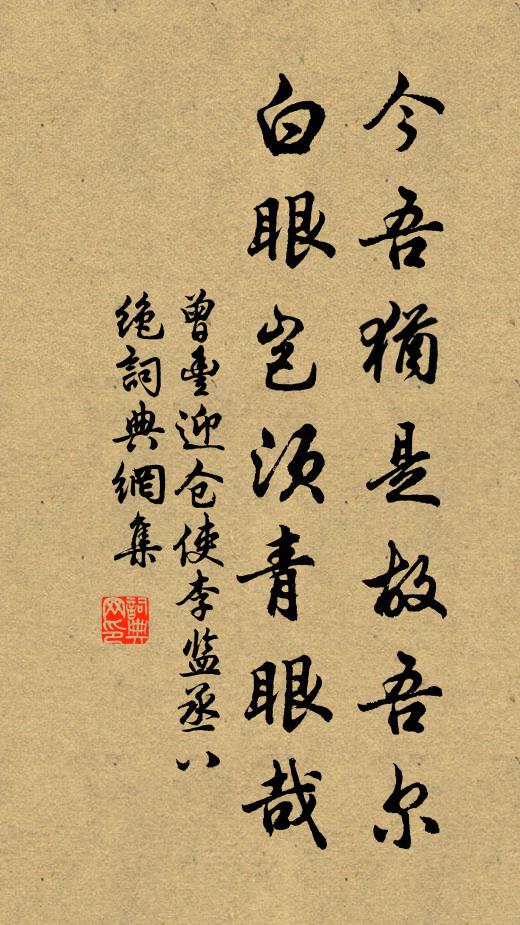 今吾猶是故吾尔
白眼岂须青眼哉
曾豊迎仓使李监丞八
绝詞典網集
詞典网印